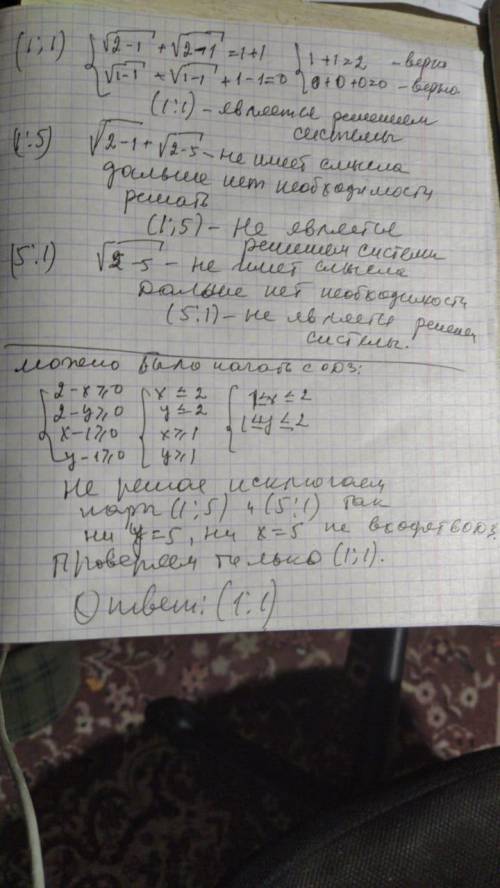 (1;1) { √2-1 + √2-1 = 1+1 { 1+1=2 - верно
√1-1 + √1-1 + 1-1=0 0+0+0=0 - верно
(1;1) - является решением
системы
(1;5) √2-1 + √2-5 - не имеет смысла
дальше нет необходимости
решать
(1;5) - не является
решением системы
(5;1) √2-5 - не имеет смысла
дальше нет необходимость
(5;1) - не является решен
системы.
Можно было начать с ОДЗ:
{ 2-x≥0 { x≤2 { 1≤x≤2
2-y≥0 y≤2 1≤y≤2
x-1≥0 x≥1
y-1≥0 y≥1
Не решая исключаем
пары (1;5) и (5;1) так
ни y=5, ни x=5 не входят в ОДЗ
Проверяем только (1;1).
Ответ: (1;1)